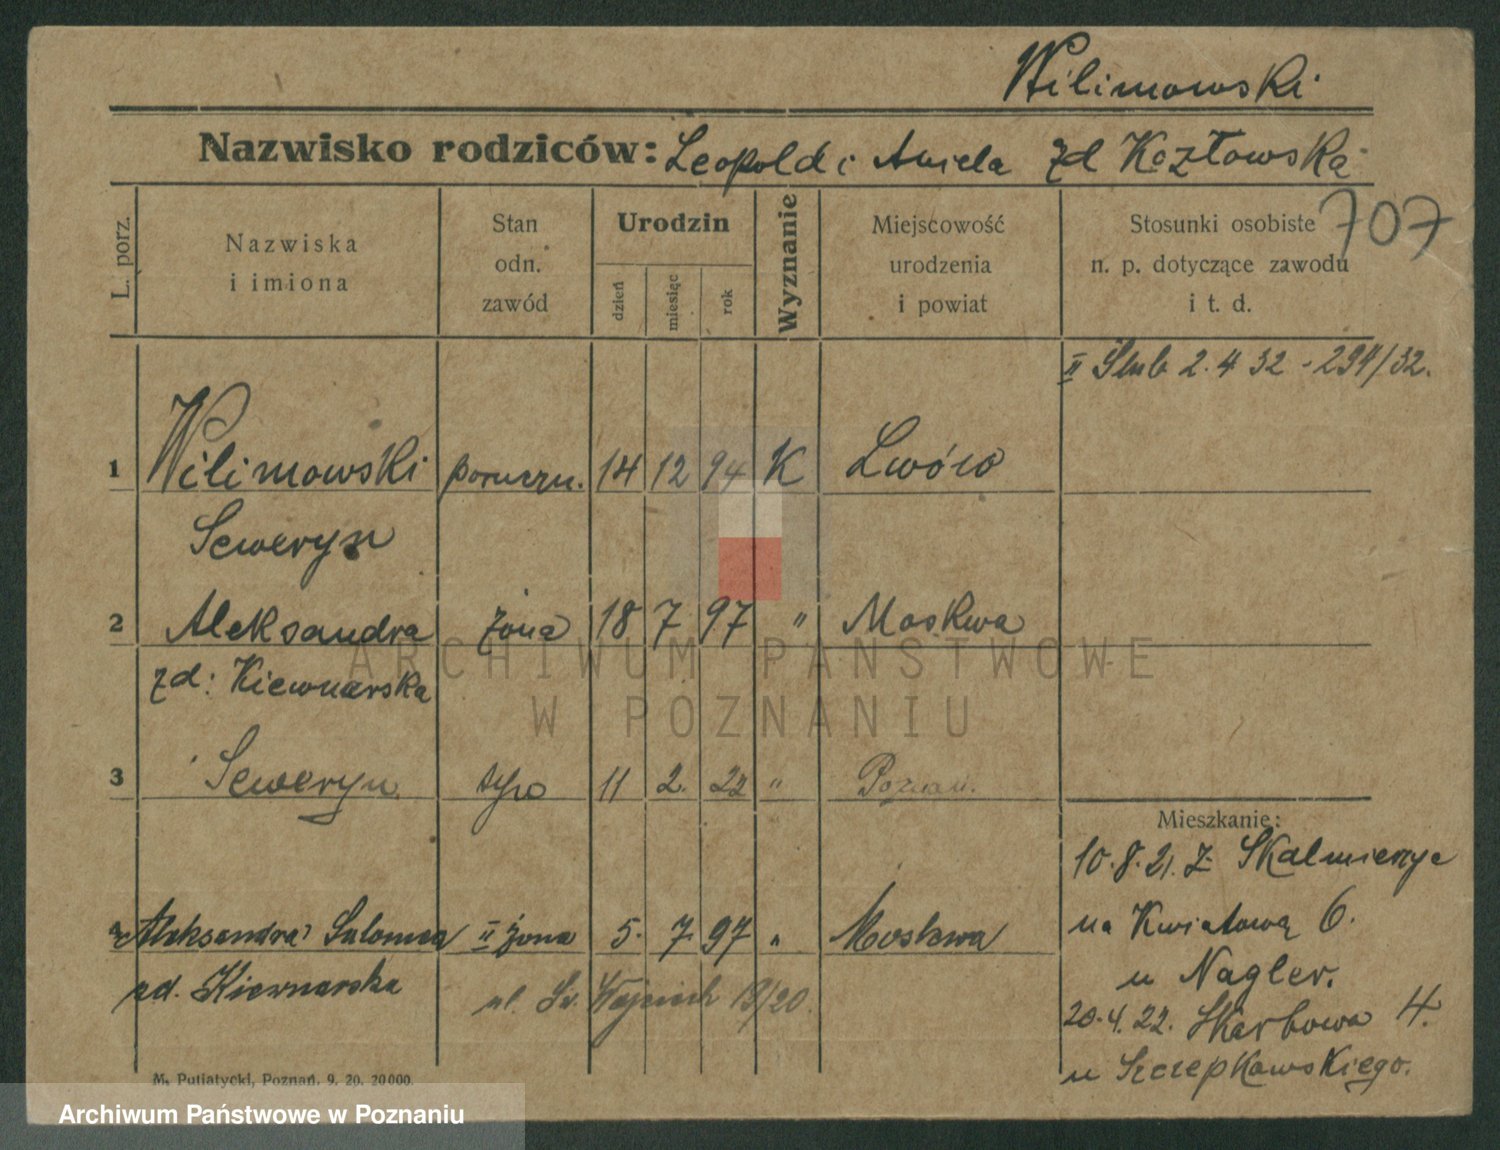 Wilimowski
Nazwisko rodziców: Leopold i Aniela zd Kozłowska
707
L. porz.
Nazwiska
i imiona
Stan
odn.
zawód
Urodzin
dzień
miesiąc
rok
Wyznanie
Miejscowość
urodzenia
i powiat
Stosunki osobiste
n. p. dotyczące zawodu
i t. d.
II Ślub 2. 4 32 - 294/32.
1 Wilimowski poruczn. 14 12 94 K Lwów
Seweryn
2 Aleksandra żona 18 7 97 " Moskwa
zd: Kiewnarska
3 Seweryn syn 11 2. 22 " Poznań.
Mieszkanie:
10. 8. 21. z Skalmierzyc
na Kwiatową 6.
u Nagler.
20. 4. 22. Skarbowa 4.
u Szczepkowskiego.
Aleksandra Salomea II żona 5. 7. 97 " Moskwa
zd. Kiernarska
ul. Św. Wojciech 19/20.
M. Putiatycki, Poznań, 9. 20. 20000.
ARCHIWUM PAŃSTWOWE
W POZNANIU
Archiwum Państwowe w Poznaniu